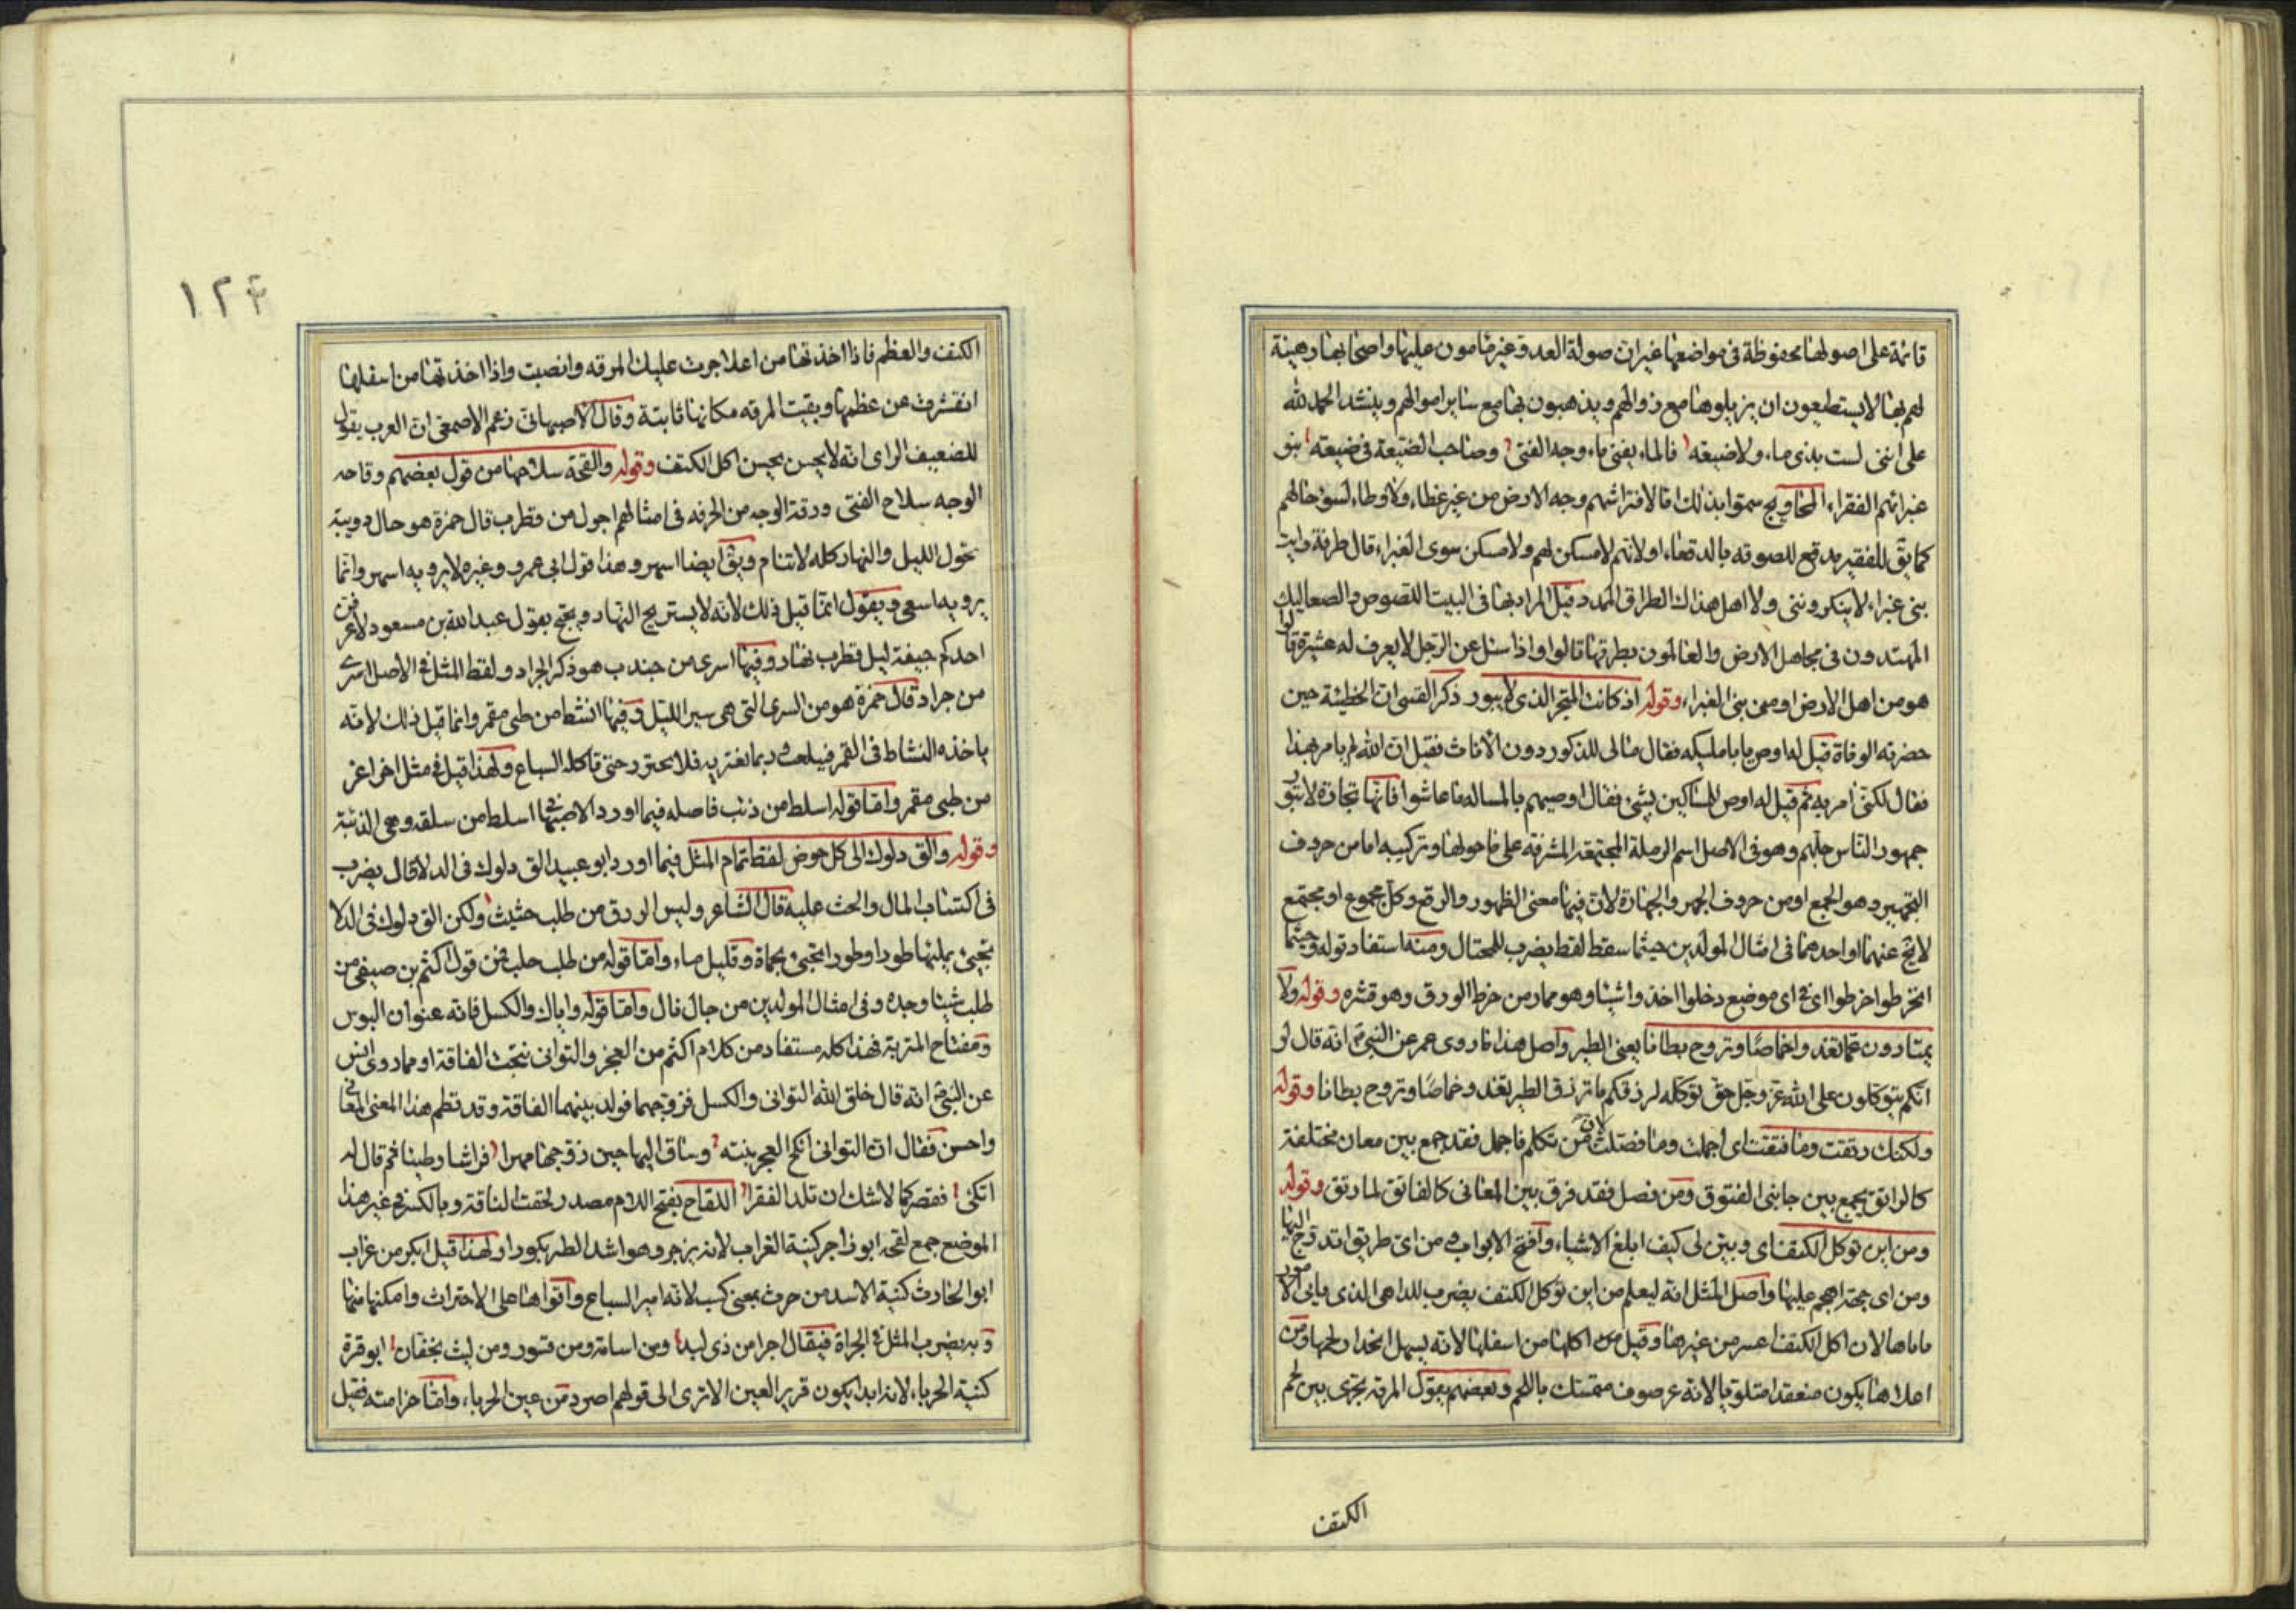 قائمة على اصولها محفوظة فى مواضعها غير ان صولة العدو غير مامون عليها واصحابها رهينة
لهم بها لا يستطيعون ان يزيلوها مع زوالهم ويذهبون بها مع ساير اموالهم وينشد الحمد لله
على اننى لست بذى ماء ولا ضيعه فالماء يفنى ماء وجه الفتى وصاحب الضيعة فى ضيعته بنو
غبرا هم الفقراء المحاويج سموا بذلك اما لافتراشهم وجه الارض من غير غطاء ولا وطاء لسوء حالهم
كما يق للفقير مدقع للصوقه بالدقعاء او لانهم لا مسكن لهم ولا مسكن سوى الغبراء قال طرفة رايت
بنى غبراء لا ينكروننى ولا اهل هذاك الطراف الممدد قيل المراد بها فى البيت اللصوص والصعاليك
المهتدون فى مجاهل الارض والعالمون بطرقها قالوا واذا سئل عن الرجل لا يعرف له عشيرة قالوا
هو من اهل الارض او من بنى الغبراء وقوله اذ كانت المتجر الذى لا يبور ذكر القسى ان الحطيئة حين
حضرته الوفاة قيل له اوص يا با مليكه فقال مالى للذكور دون الاناث فقيل ان الله لم يامر بهذا
فقال لكنى امر به ثم قيل له اوص للمساكين بشئ فقال اوصيهم بالمساله ما عاشوا فانها تجارة لا تبور
جمهور الناس جلهم وهو فى الاصل اسم الرملة المجتمعة المشرفة على ما حولها وتركيبه اما من حروف
التجمير وهو الجمع او من حروف الجهر والجهارة لان فيها معنى الظهور والرفع وكل مجموع او مجتمع
لا يخ عنهما او احدهما فى امثال المولدين حيثما سقط لقط يضرب للمحتال ومنه استفاد قوله وحيثما
انخرطوا خرطوا اى فى اى موضع دخلوا اخذوا شيئا وهو مماد من خرط الورق وهو قشره وقوله ولا
يمتازون عما تغدوا خماصا وتروح بطانا يعنى الطير واصل هذا ما روى عمر عن النبى ص انه قال لو
انكم تتوكلون على الله عز وجل حق توكله لرزقكم ما ترزق الطير تغدو خماصا وتروح بطانا وقوله
ولكنك رتقت وما فتقت اى اجملت وما فصلت لان من تكلم فاجمل فقد جمع بين معان مختلفة
كالراتق يجمع بين جانبى الفتوق ومن فصل فقد فرق بين المعانى كالفاتق لما رتق وقوله
ومن اين توكل الكتف اى وبين لى كيف ابلغ الاشياء وافتح الابواب ومن اى طريق اتدرج اليها
ومن اى جهة اهجم عليها واصل المثل انه ليعلم من اين توكل الكتف يضرب للداهى الذى ياتى الامور
ماتاها لان اكل الكتف اعسر من غيرها وقيل اكلها من اسفلها لانه يسهل انحدار لحمها ومن
اعلاها يكون منعقدا متلويا لانه غرصوف متمسك باللحم وبعضهم يقول المرقه تجرى بين لحم
الكتف
١٢٤
الكتف والعظم فاذا اخذتها من اعلا جرت عليك المرقه وانصبت واذا اخذتها من اسفلها
انقشرت عن عظمها وبقيت المرقه مكانها ثابتة وقال الاصبهانى زعم الاصمعى ان العرب يقول
للضعيف الراى انه لا يحسن يحسن اكل الكتف وقوله والقحة سلاحها من قول بعضهم وقاحه
الوجه سلاح الفتى ورقة الوجه من الحرفه فى امثالهم اجول من قطرب قال حمزة هو حال دويبة
تجول الليل والنهار كله لا تنام ويق ايضا اسهر وهذا قول ابى عمرو وغيره لا يرويه اسهر وانما
يرويه اسعى ويقول انما قيل ذلك لانه لا يستريح النهار ويحتج بقول عبد الله بن مسعود لا عرفن
احدكم جيفة ليل قطرب نهار وفيها اسرى من جندب هو ذكر الجراد ولفظ المثل فى الاصل اسرى
من جراد قال حمزة هو من السرى التى هى سير الليل وفيها انشط من ظبى مقمر وانما قيل ذلك لانه
ياخذه النشاط فى القمر فيلعب وربما تغتر به فلا يحترز حتى تاكله السباع ولهذا قيل فى مثل اخر اغر
من ظبى مقمر واما قوله اسلط من ذئب فاصله فيما اورد الاصبهانى اسلط من سلقه وهى الذئبة
وقوله والق دلوك الى كل حوض لفظ تمام المثل فيما اورد ابو عبيد الق دلوك فى الدلا قال يضرب
فى اكتساب المال والحث عليه قال الشاعر وليس الرزق من طلب حثيث ولكن الق دلوك فى الدلا
تجئ بملئها طورا وطورا تجئ بحماة وقليل ماء واما قوله من طلب جلب فمن قول اكثم بن صيفى من
طلب شيئا وجده وفى امثال المولدين من جال نال واما قوله واياك والكسل فانه عنوان البوس
ومفتاح المتربة فهذا كله مستفاد من كلام اكثم من العجز والتوانى نتجت الفاقة او مما روى انس
عن النبى ص انه قال خلق الله التوانى والكسل فزوجهما فولد بينهما الفاقة وقد نظم هذا المعنى المعانى
واحسن فقال ان التوانى انكح العجز بنته وساق اليها حين زوجها مهرا فراشا وطيئا ثم قال له
اتكئ فقصركما لا شك ان تلد الفقرا اللقاح بفتح اللام مصدر لقحت الناقة وبالكسر فى غير هذا
الموضع جمع لقحه ابو زاجر كنية الغراب لانه يزجر وهو اشد الطير بكورا ولهذا قيل ابكر من غراب
ابو الحارث كنية الاسد من حرث بمعنى كسب لانه امير السباع واقواها على الاحتراث وامكنها منها
وبه يضرب المثل فى الجراة فيقال اجرا من ذى لبد ومن اسامة ومن قسور ومن ليث بخفان ابو قرة
كنية الحرباء لانه ابدا يكون قرير العين الا ترى الى قولهم اصرد من عين الحرباء واما حزامته فقيل